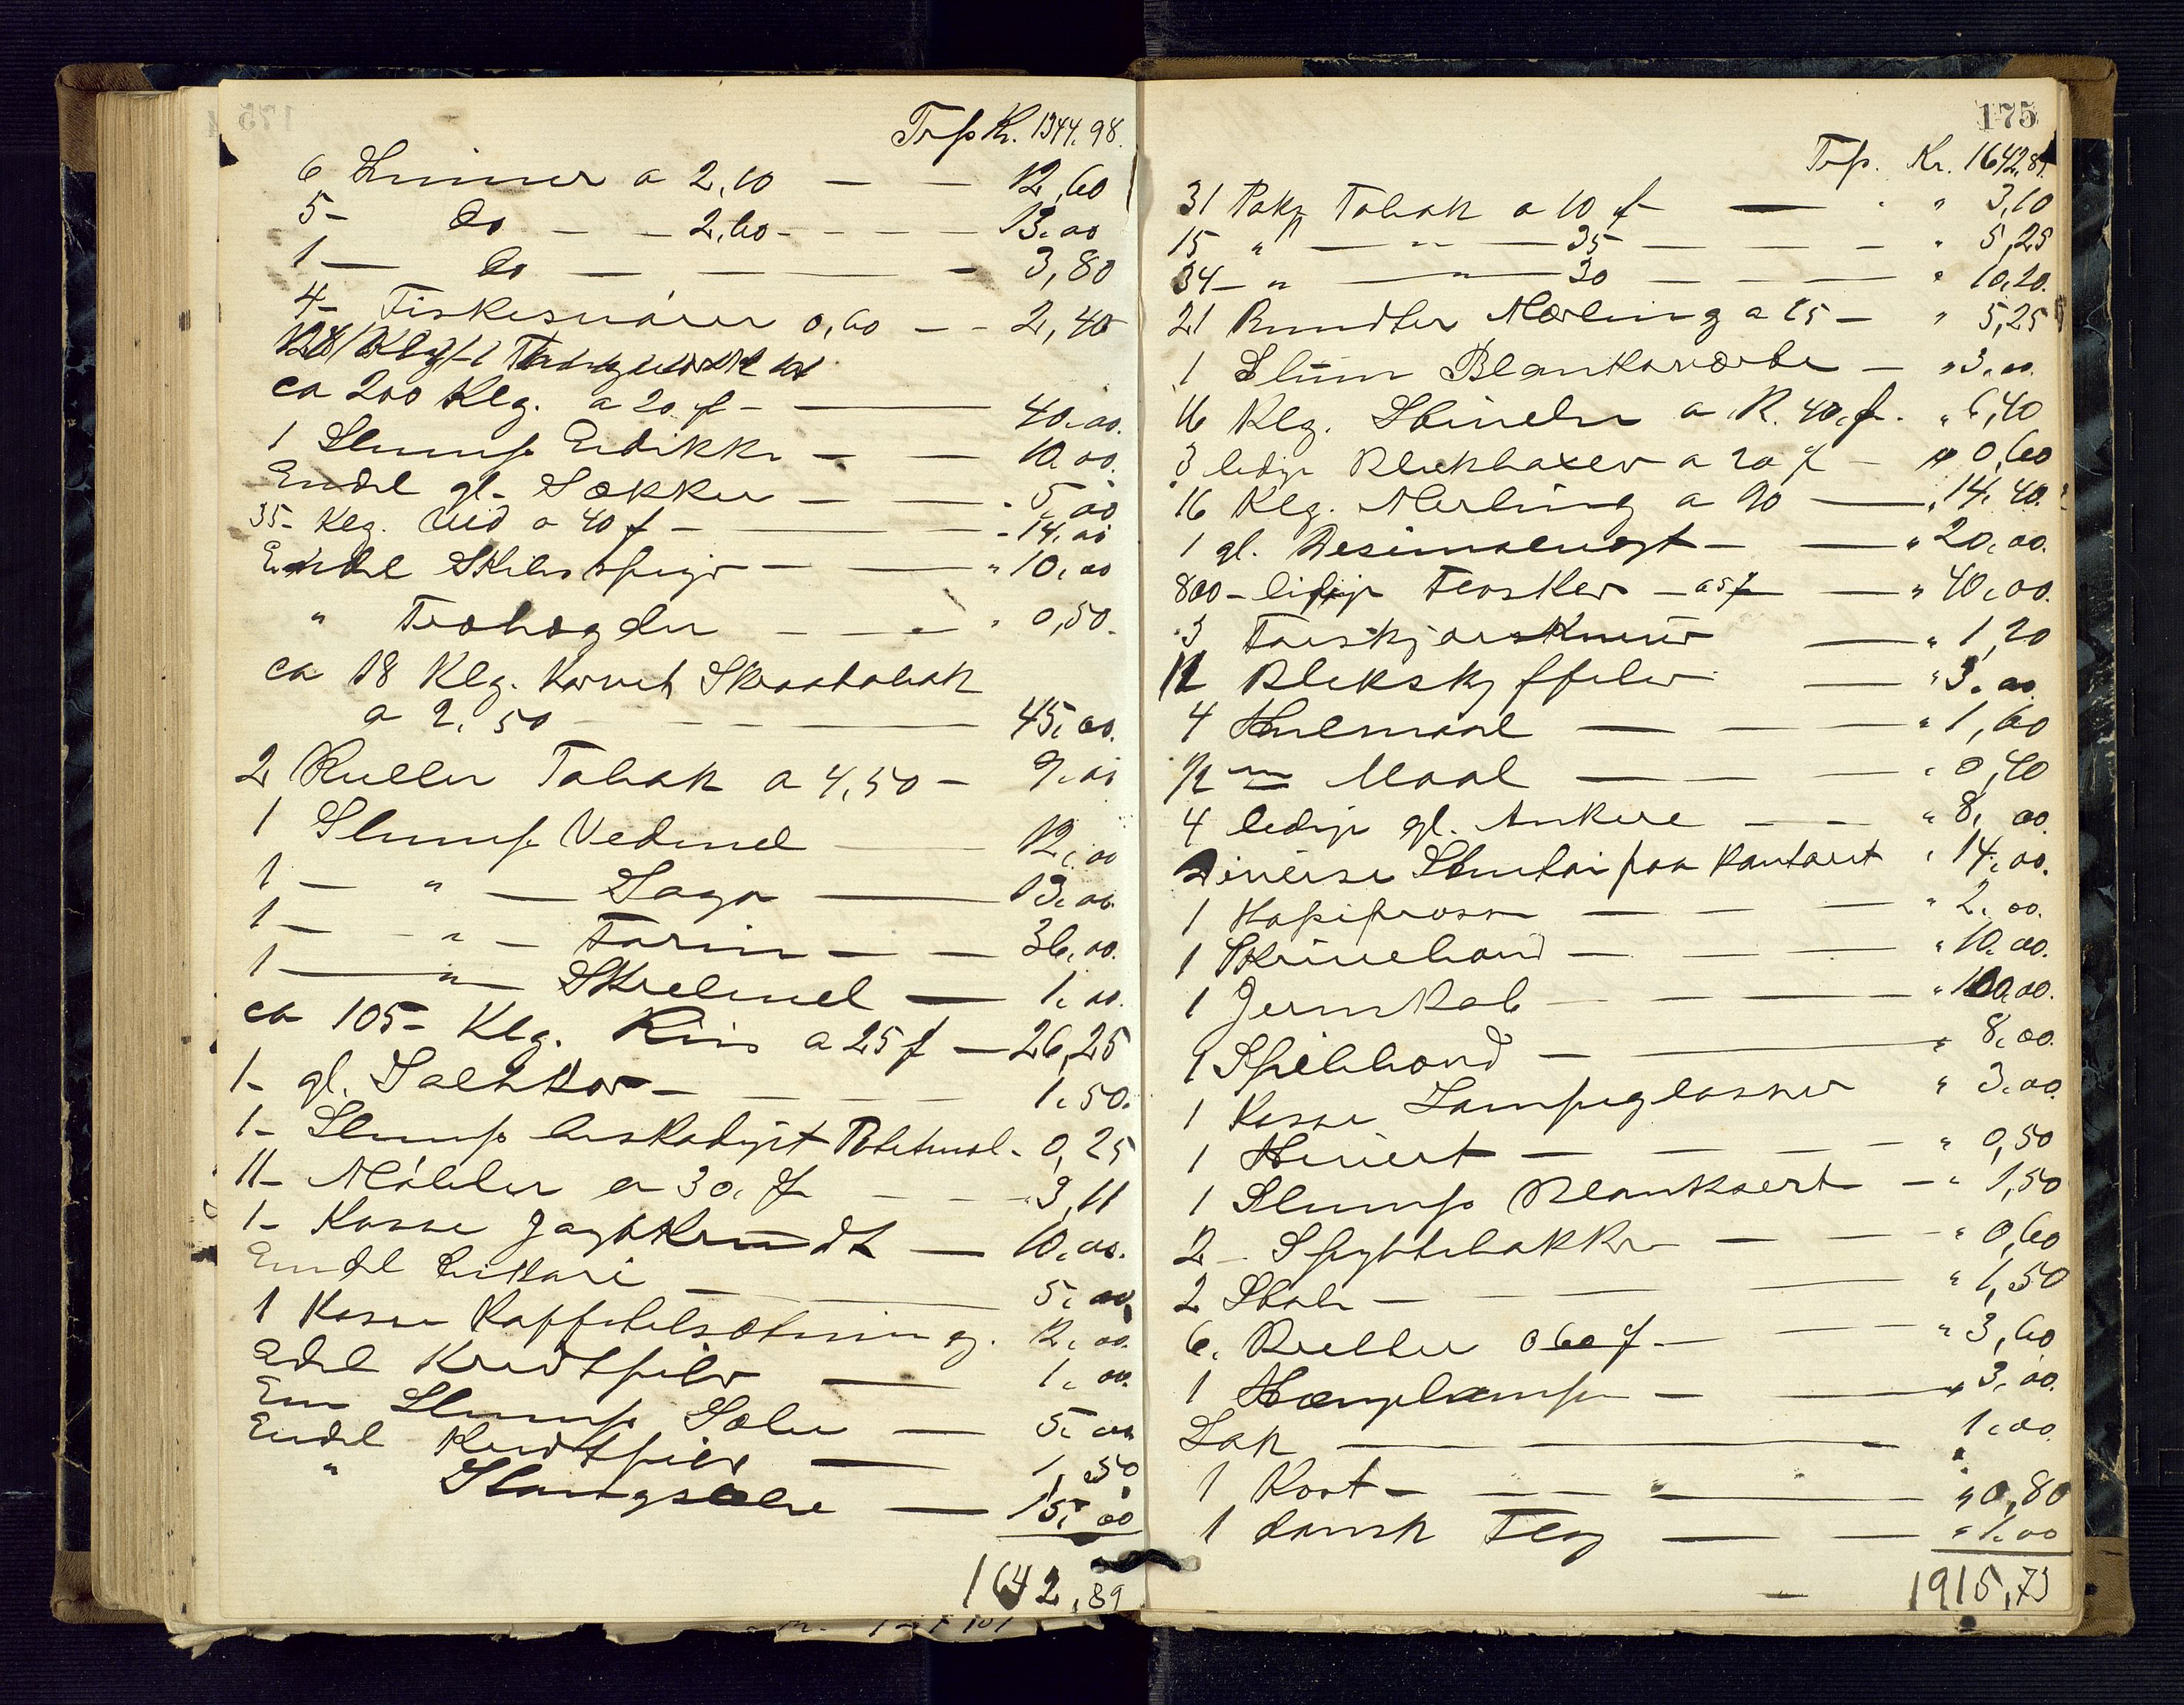 Trsp Kr. 1344.98.
6 Linner a 2,10 — — 12,60
5- Do — — 2,60 - - - — 13.00
1 — Do — — — - 3,80
4- Fiskesnører 0,60 — - 2,40
ca 200 Klg. a 20 f - — 40.00.
1 Slump Eidikke — — 10.00.
Endel gl. Sækker — — - 5,00
35- Klg. Uld a 40 f - — - 14.00
Endel Skibsspiger — — " 10,00
" Træhagder — — - " 0,50.
ca 18 Klg. karvet Skraatobak
a 2,50 — — — 45,00.
2 Ruller Tobak a 4,50 — 9.00
1 Slump Vedmel — 12,00
1 — " — Sago — 13.00.
1 — " — Farin — — 36,00.
1 — " Skrelmel — 1.00.
ca 105- Klg. Riis a 25 f — 26,25
1- gl. Saltkar — — — 1.50.
1- Slump beskadiget Potetmel - 0,25
11- Mábler a 30. f — - 3,11
1- Kasse Jagtkrudt — 10.00.
Endel Cikori — 5,00
1 Kasse Kaffetilsætning. 12,00.
Edel Kridtpiber — 1,00.
Em Slump Sæler — 5.00
Endel Kridtpiber — 1,50
" Stangsæbe — 15,00
1642,89
175
Trsp. Kr. 1642,89.
31 Pakr Tobak a 10 f — " 3,10
15 " — " — 35 — — " 5,25
34 - " — " — 30 — — " 10,20.
21 Bundter Mærling a 25 — " 5,25
1 Slum Blanksværte — " 3.00.
16 Klg. Stiveln a K. 40. f. " 6,40
3 ledige Blikboxer a 20 f — " 0,60
16 Klg. Merling a 90 — " 14,40.
1 gl. Desimalvægt — — " 20,00.
800 - ledige Flasker — a 5 f — " 40,00.
3 Torskjærsknive — " 1,20
12 Blikskuffeler — " 3.00
4 Hulmaal — — — " 1,60
1/2 " Maal — — — " 0,40
4 ledige gl. Ankere — — " 8,00
Diverse Skuctoi paa kontoret " 14.00.
1 Kopipresse — — — " 2,00.
1 Skrivebord — — — " 10.00.
1 Jernskab — — — " 100,00.
1 Spilbord — — " 8,00.
1 Kasse Lampeglasser " 3.00.
1 Hevert — — — " 0,50
1 Slump Blanksvert — " 1,50
2 - Spyttebakker — — " 0,60
2 Stole — — — " 1,50
6. Ruller a 60 f — — " 3,60
1 Hængelampe — — " 3,00.
Lak — — — 1,00.
1 Kort — — — " — " 0,80
1 dansk Flag — — " 1.00
1915,73